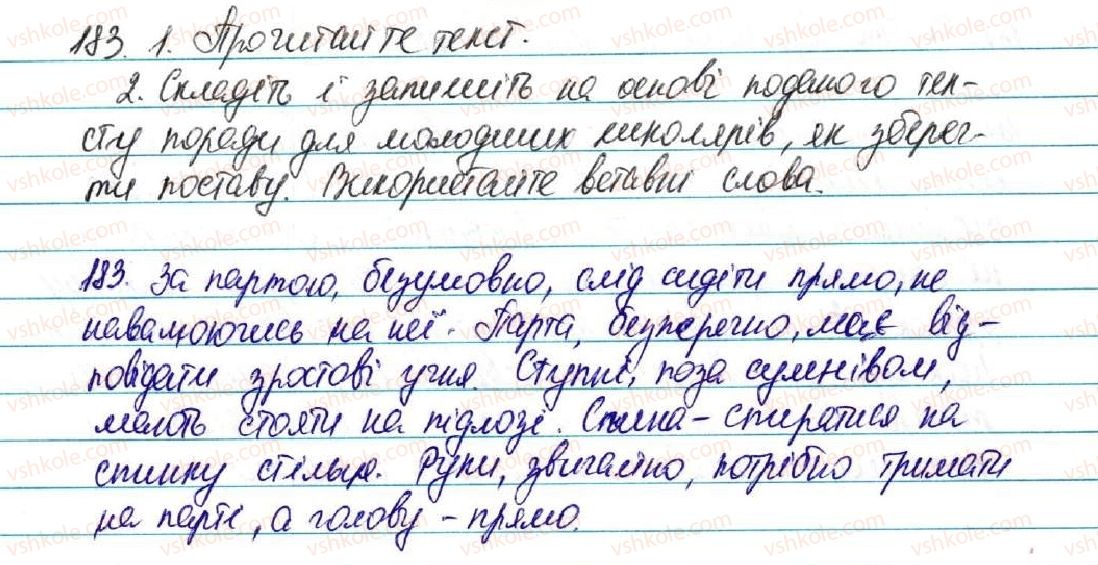 183. 1. Прочитайте текст.
2. Складіть і запишіть на основі поданого тек-
сту поради для молодших школярів, як зберег-
ти поставу. Використайте вставні слова.
183. За партою, безумовно, слід сидіти прямо, не
навалюючись на неї. Парта, безперечно, має від-
повідати зростові учня. Ступні, поза сумнівом,
мають стояти на підлозі. Спина - спиратися на
спинку стільця. Руки, звичайно, потрібно тримати
на парті, а голову - прямо.